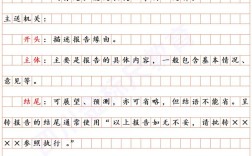 主送机关：
开头：描述报告缘由。
主体：主要是报告的具体内容，一般包含基本情况、
意见等。
结尾：可展望、预测，亦可省略，但结语不能省。呈
转报告的结尾通常使用“以上报告如无不妥，请批转×
××参照执行。”